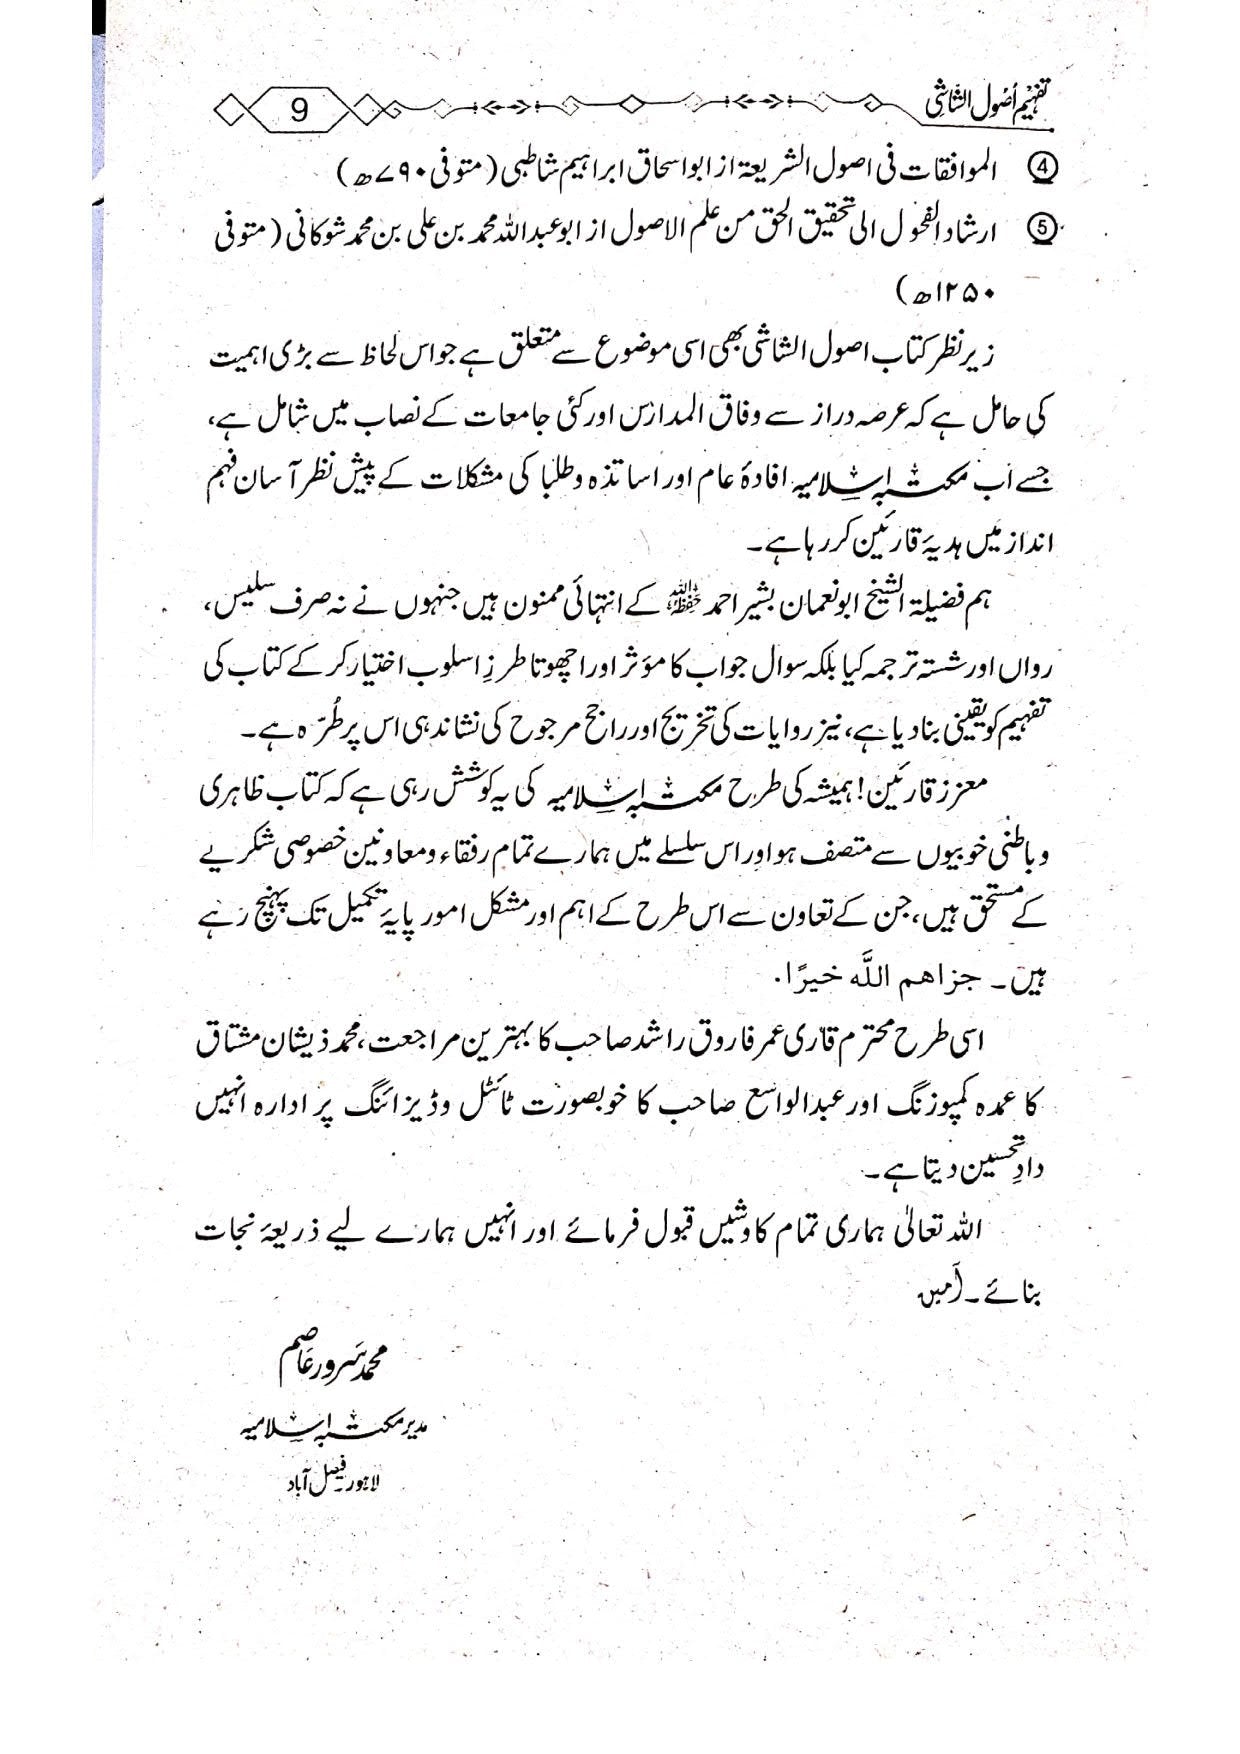 تفہیم اُصول الشاشی
9
④ الموافقات فی اصول الشریعۃ از ابواسحاق ابراہیم شاطبی (متوفی ۷۹۰ھ)
⑤ ارشاد الفحول الی تحقیق الحق من علم الاصول از ابوعبداللہ محمد بن علی بن محمد شوکانی (متوفی
۱۲۵۰ھ)
زیر نظر کتاب اصول الشاشی بھی اسی موضوع سے متعلق ہے جو اس لحاظ سے بڑی اہمیت
کی حامل ہے کہ عرصہ دراز سے وفاق المدارس اور کئی جامعات کے نصاب میں شامل ہے،
جسے اب مکتبہ اسلامیہ افادۂ عام اور اساتذہ وطلبا کی مشکلات کے پیش نظر آسان فہم
انداز میں ہدیۂ قارئین کر رہا ہے۔
ہم فضیلۃ الشیخ ابونعمان بشیر احمد حفظہ اللہ کے انتہائی ممنون ہیں جنہوں نے نہ صرف سلیس،
رواں اور شستہ ترجمہ کیا بلکہ سوال جواب کا مؤثر اور اچھوتا طرزِ اسلوب اختیار کر کے کتاب کی
تفہیم کو یقینی بنا دیا ہے، نیز روایات کی تخریج اور راجح مرجوح کی نشاندہی اس پر طُرّہ ہے۔
معزز قارئین! ہمیشہ کی طرح مکتبہ اسلامیہ کی یہ کوشش رہی ہے کہ کتاب ظاہری
و باطنی خوبیوں سے متصف ہو اور اس سلسلے میں ہمارے تمام رفقاء و معاونین خصوصی شکریے
کے مستحق ہیں، جن کے تعاون سے اس طرح کے اہم اور مشکل امور پایۂ تکمیل تک پہنچ رہے
ہیں۔ جزاهم اللّٰه خيرًا.
اسی طرح محترم قاری عمر فاروق راشد صاحب کا بہترین مراجعت، محمد ذیشان مشتاق
کا عمدہ کمپوزنگ اور عبدالواسع صاحب کا خوبصورت ٹائٹل وڈیزائنگ پر ادارہ انہیں
دادِ تحسین دیتا ہے۔
اللہ تعالیٰ ہماری تمام کاوشیں قبول فرمائے اور انہیں ہمارے لیے ذریعۂ نجات
بنائے۔ آمین
محمد سرور عاصم
مدیر مکتبہ اسلامیہ
لاہور۔ فیصل آباد